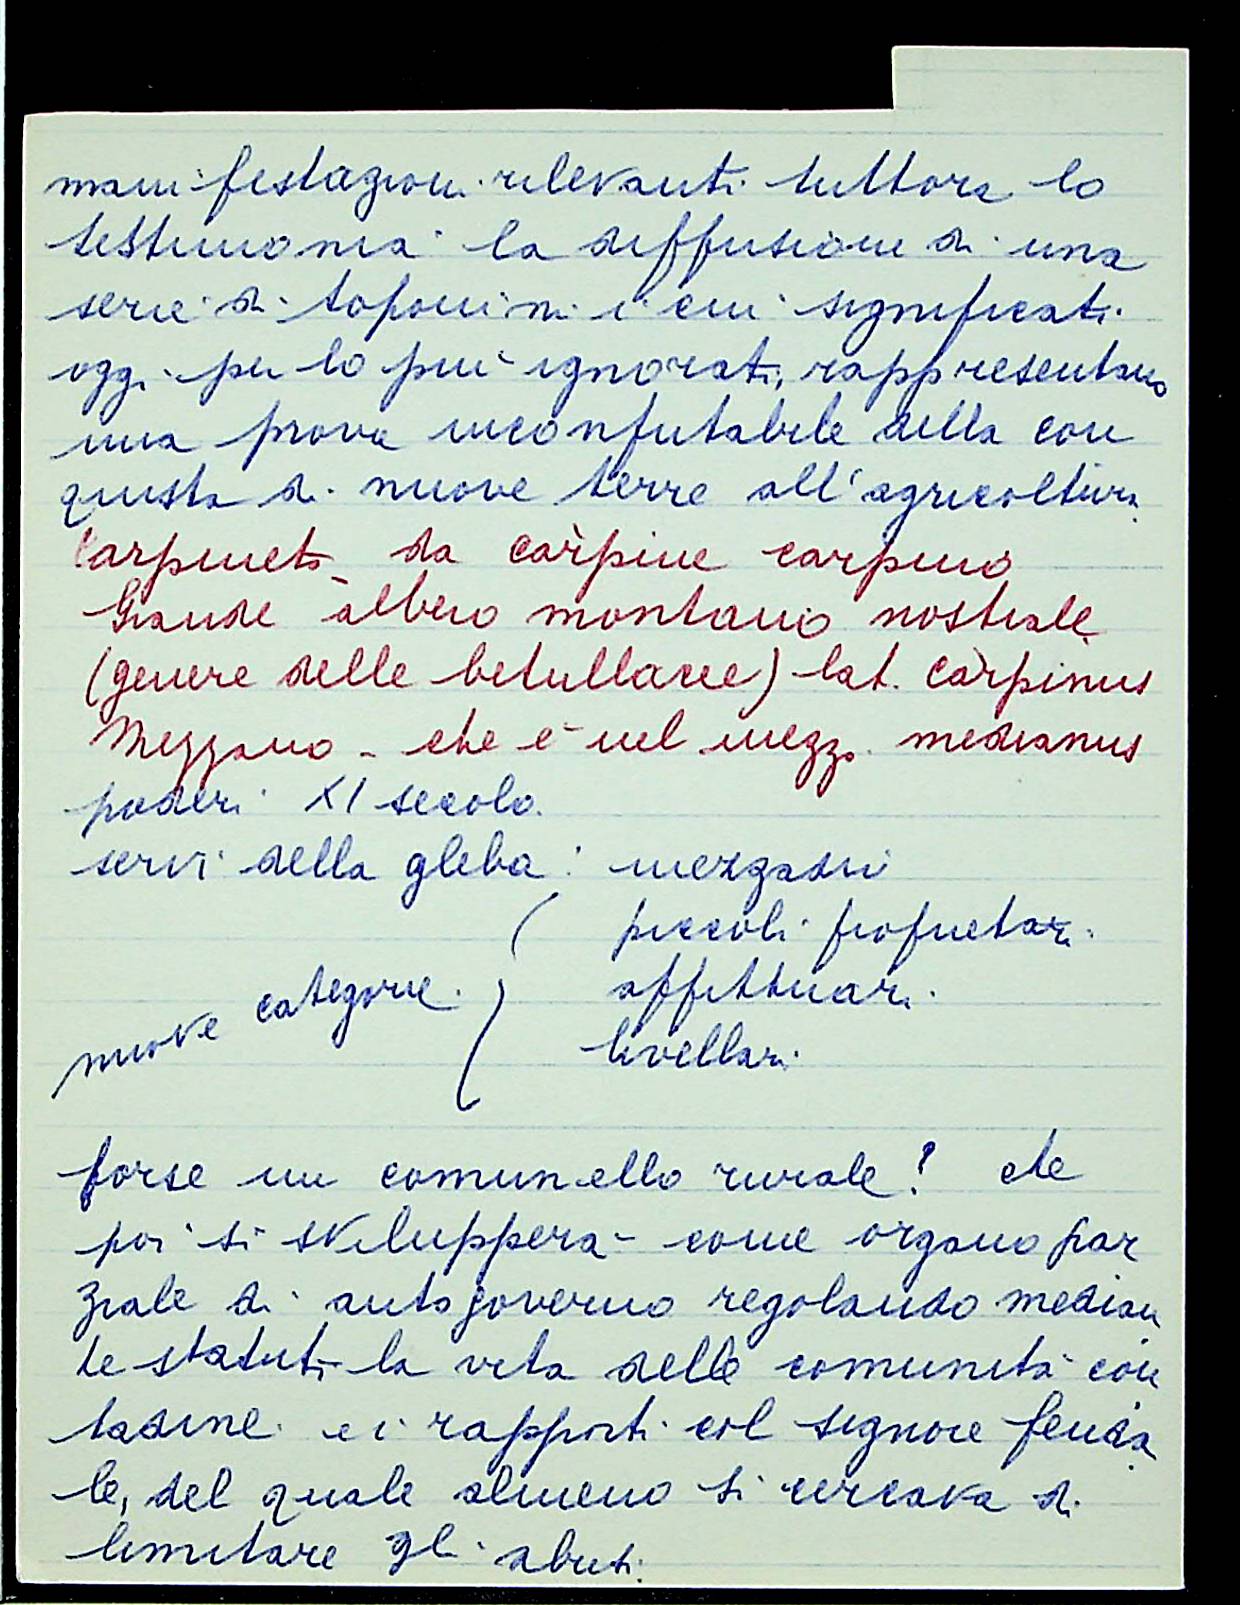 manifestazioni rilevanti tuttora lo
testimonia la diffusione di una
serie di toponimi i cui significati
oggi per lo più ignorati, rappresentano
una prova inconfutabile della con
quista di nuove terre all'agricoltura
Carpineto da càrpine carpino
Grande albero montano nostrale
(genere delle betullacee) lat. càrpinus
Mezzano - che è nel mezzo. medianus
poderi XI secolo.
servi della gleba : mezzadri
( piccoli proprietari.
nuove categorie. ) affittuari.
livellari.
forse un comunello rurale? che
poi si svilupperà come organo par
ziale di autogoverno regolando median
te statuti la vita delle comunità con
tadine e i rapporti col signore feuda
le, del quale almeno si cercava di
limitare gli abusi.